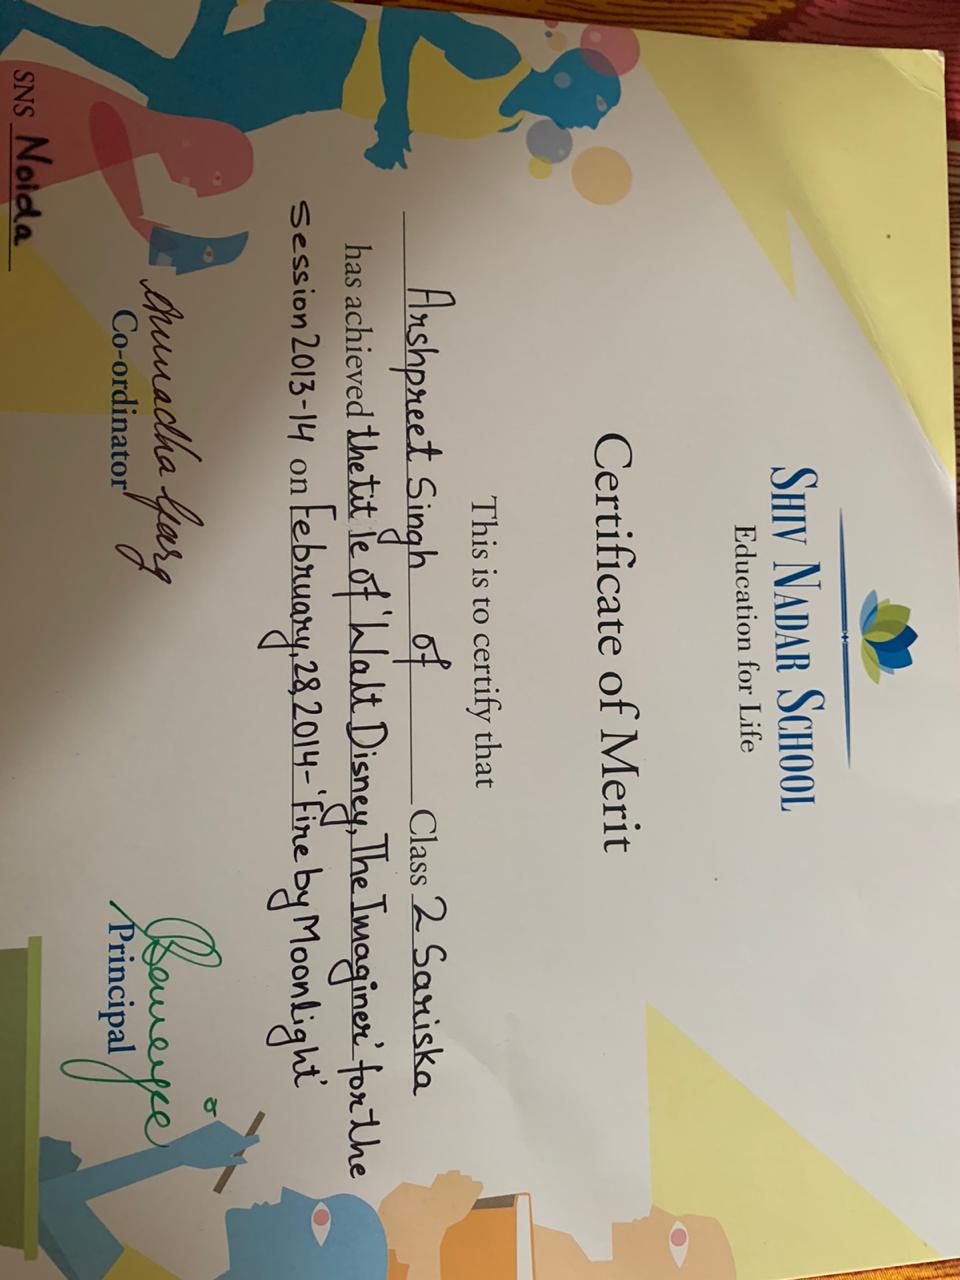 SHIV NADAR SCHOOL
Education for Life
Certificate of Merit
This is to certify that
Arshpreet Singh of Class 2 Sariska
has achieved the title of 'Walt Disney, The Imaginer' for the
Session 2013-14 on February, 28, 2014 - 'Fire by Moonlight'
Anuradha Garg
Co-ordinator
Principal
SNS Noida